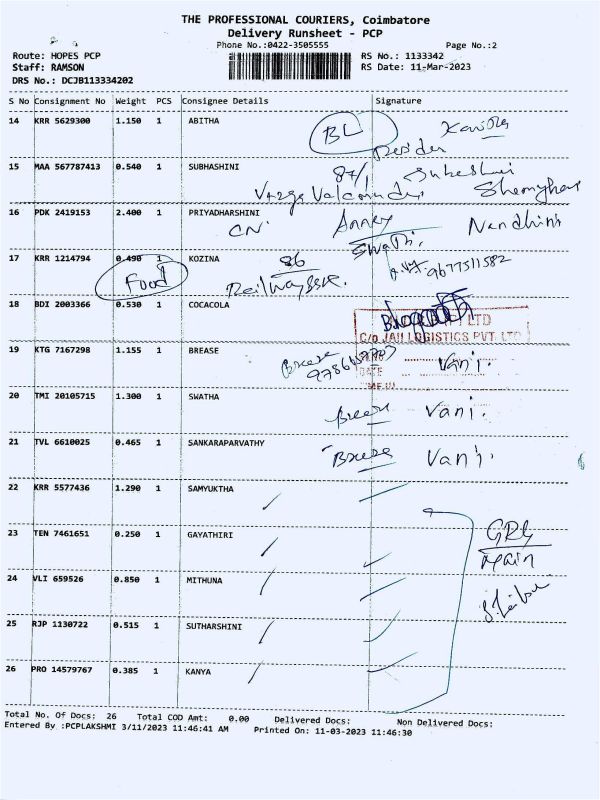 THE PROFESSIONAL COURIERS, Coimbatore
Delivery Runsheet - PCP
Phone No.:0422-3505555 Page No.:2
Route: HOPES PCP RS No.: 1133342
Staff: RAMSON RS Date: 11-Mar-2023
DRS No.: DCJB113334202
S No Consignment No Weight PCS Consignee Details Signature
14 KRR 5629300 1.150 1 ABITHA
BL
15 MAA 567787413 0.540 1 SUBHASHINI
87/1
16 PDK 2419153 2.400 1 PRIYADHARSHINI
CN. Annex Nandhini
Swathi.
17 KRR 1214794 0.490 1 KOZINA
Food 86 9677511582
18 BDI 2003366 0.530 1 COCACOLA
LTD
C/o JAII LOGISTICS PVT. LTD
19 KTG 7167298 1.155 1 BREASE
Breeze Vani.
DATE
20 TMI 20105715 1.300 1 SWATHA
Breeze Vani.
21 TVL 6610025 0.465 1 SANKARAPARVATHY
Breeze Vani.
22 KRR 5577436 1.290 1 SAMYUKTHA
23 TEN 7461651 0.250 1 GAYATHIRI
GRG
Main
24 VLI 659526 0.850 1 MITHUNA
25 RJP 1130722 0.515 1 SUTHARSHINI
26 PRO 14579767 0.385 1 KANYA
Total No. Of Docs: 26 Total COD Amt: 0.00 Delivered Docs: Non Delivered Docs:
Entered By :PCPLAKSHMI 3/11/2023 11:46:41 AM Printed On: 11-03-2023 11:46:30